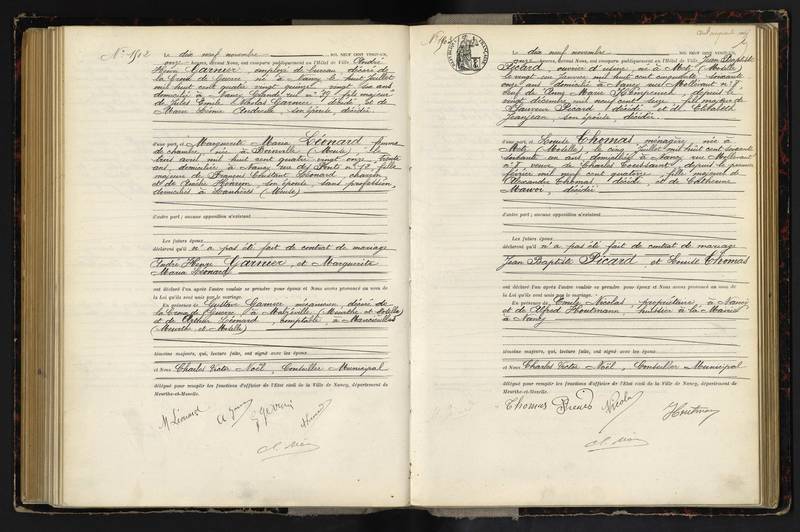 N° 1502
Le dix neuf novembre MIL NEUF CENT VINGT-UN,
onze heures, devant Nous, ont comparu publiquement en l'Hôtel de Ville André
Henri GARNIER, employé de bureau, décoré de
la Croix de Guerre, né à Nancy le huit juillet
mil huit cent quatre vingt quinze, vingt six ans
domicilié à Nancy, rue n° 79, fils majeur
de Jules Emile Nicolas Garnier, décédé et de
Marie son épouse, décédée
d'une part, et Marguerite Maria Léonard, femme
de chambre, née à Boinville (Meuse), le
trois avril mil huit cent quatre vingt onze, trente
ans, domiciliée à Nancy rue des Ponts n° 12, fille
majeure de François Constant Léonard,
et de son épouse, sans profession,
domiciliés à (Meuse)
d'autre part; aucune opposition n'existant
Les futurs époux
déclarent qu'il n'a pas été fait de contrat de mariage
André Henri GARNIER, et Marguerite
Maria Léonard
ont déclaré l'un après l'autre vouloir se prendre pour époux et Nous avons prononcé au nom de
la Loi qu'ils sont unis par le mariage.
En présence de Gustave Garnier mécanicien, décoré de
la Croix de Guerre, à Malzéville (Meurthe et Moselle)
et de Léonard, comptable, à
(Meurthe et Moselle)
témoins majeurs, qui, lecture faite, ont signé avec les époux
et Nous Charles Victor Noël, Conseiller Municipal
délégué pour remplir les fonctions d'officier de l'Etat civil de la Ville de Nancy, département de
Meurthe-et-Moselle.
M Léonard
Le dix neuf novembre MIL NEUF CENT VINGT-UN,
onze heures, devant Nous, ont comparu publiquement en l'Hôtel de Ville Jean Baptiste
Picard, ouvrier d'usine, né à Metz (Moselle)
le vingt un janvier mil huit cent cinquante, soixante
onze ans domicilié à Nancy rue Mollevaut n° 8,
veuf de Anne Marie depuis le
vingt décembre mil neuf cent seize, fils majeur de
Picard, décédé et de
Jeanjean, son épouse, décédée.
d'une part, et Emilie Thomas, ménagère, née à
Metz (Moselle) le cinq juillet mil huit cent soixante
soixante un ans, domiciliée à Nancy rue Mollevaut
n° 8, veuve de Charles Toussaint, depuis le premier
février mil neuf cent quatorze, fille majeure de
Alexandre Thomas, décédé, et de Catherine
décédée
d'autre part; aucune opposition n'existant
Les futurs époux
déclarent qu'il n'a pas été fait de contrat de mariage
Jean Baptiste Picard, et Emilie Thomas
ont déclaré l'un après l'autre vouloir se prendre pour époux et Nous avons prononcé au nom de
la Loi qu'ils sont unis par le mariage.
En présence de Emile Nicolas, propriétaire, à Nancy
et de Alfred Houtmann, huissier à la Mairie
à Nancy
témoins majeurs, qui, lecture faite, ont signé avec les époux
et Nous Charles Victor Noël, Conseiller Municipal
délégué pour remplir les fonctions d'officier de l'Etat civil de la Ville de Nancy, département de
Meurthe-et-Moselle.
Thomas Nicolas Houtmann